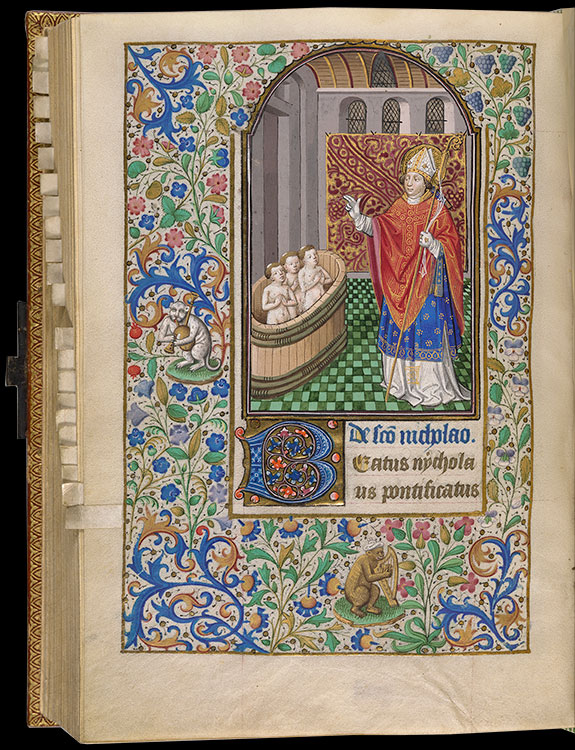 De sco nicholao.
Beatus nychola
us pontificatus